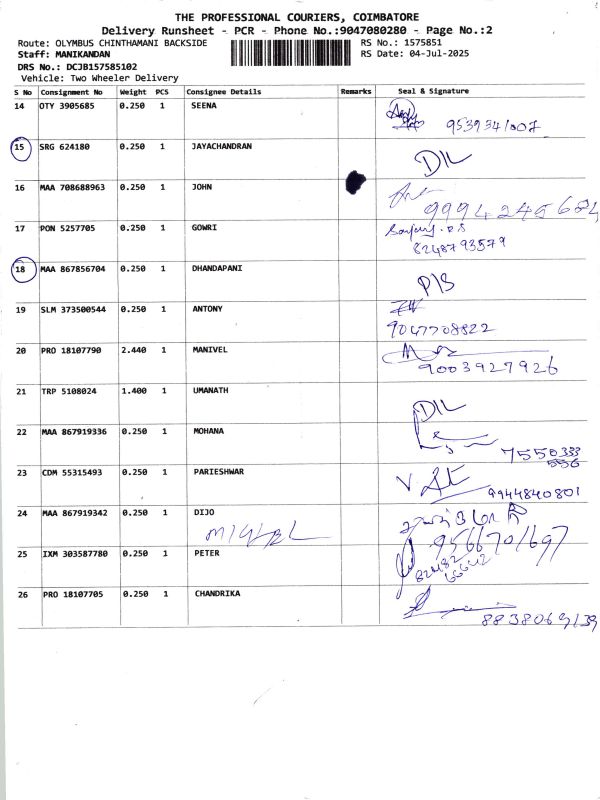 THE PROFESSIONAL COURIERS, COIMBATORE
Delivery Runsheet - PCR - Phone No.:9047080280 - Page No.:2
Route: OLYMBUS CHINTHAMANI BACKSIDE RS No.: 1575851
Staff: MANIKANDAN RS Date: 04-Jul-2025
DRS No.: DCJB157585102
Vehicle: Two Wheeler Delivery
S No Consignment No Weight PCS Consignee Details Remarks Seal & Signature
14 OTY 3905685 0.250 1 SEENA
9539541007
15 SRG 624180 0.250 1 JAYACHANDRAN
D/L
16 MAA 708688963 0.250 1 JOHN
9994245684
17 PON 5257705 0.250 1 GOWRI
8248793579
18 MAA 867856704 0.250 1 DHANDAPANI
P/B
19 SLM 373500544 0.250 1 ANTONY
9047708822
20 PRO 18107790 2.440 1 MANIVEL
9003927926
21 TRP 5108024 1.400 1 UMANATH
D/L
22 MAA 867919336 0.250 1 MOHANA
7550333
556
23 CDM 55315493 0.250 1 PARIESHWAR
9944840801
24 MAA 867919342 0.250 1 DIJO
9566701697
25 IXM 303587780 0.250 1 PETER
26 PRO 18107705 0.250 1 CHANDRIKA
8838069139